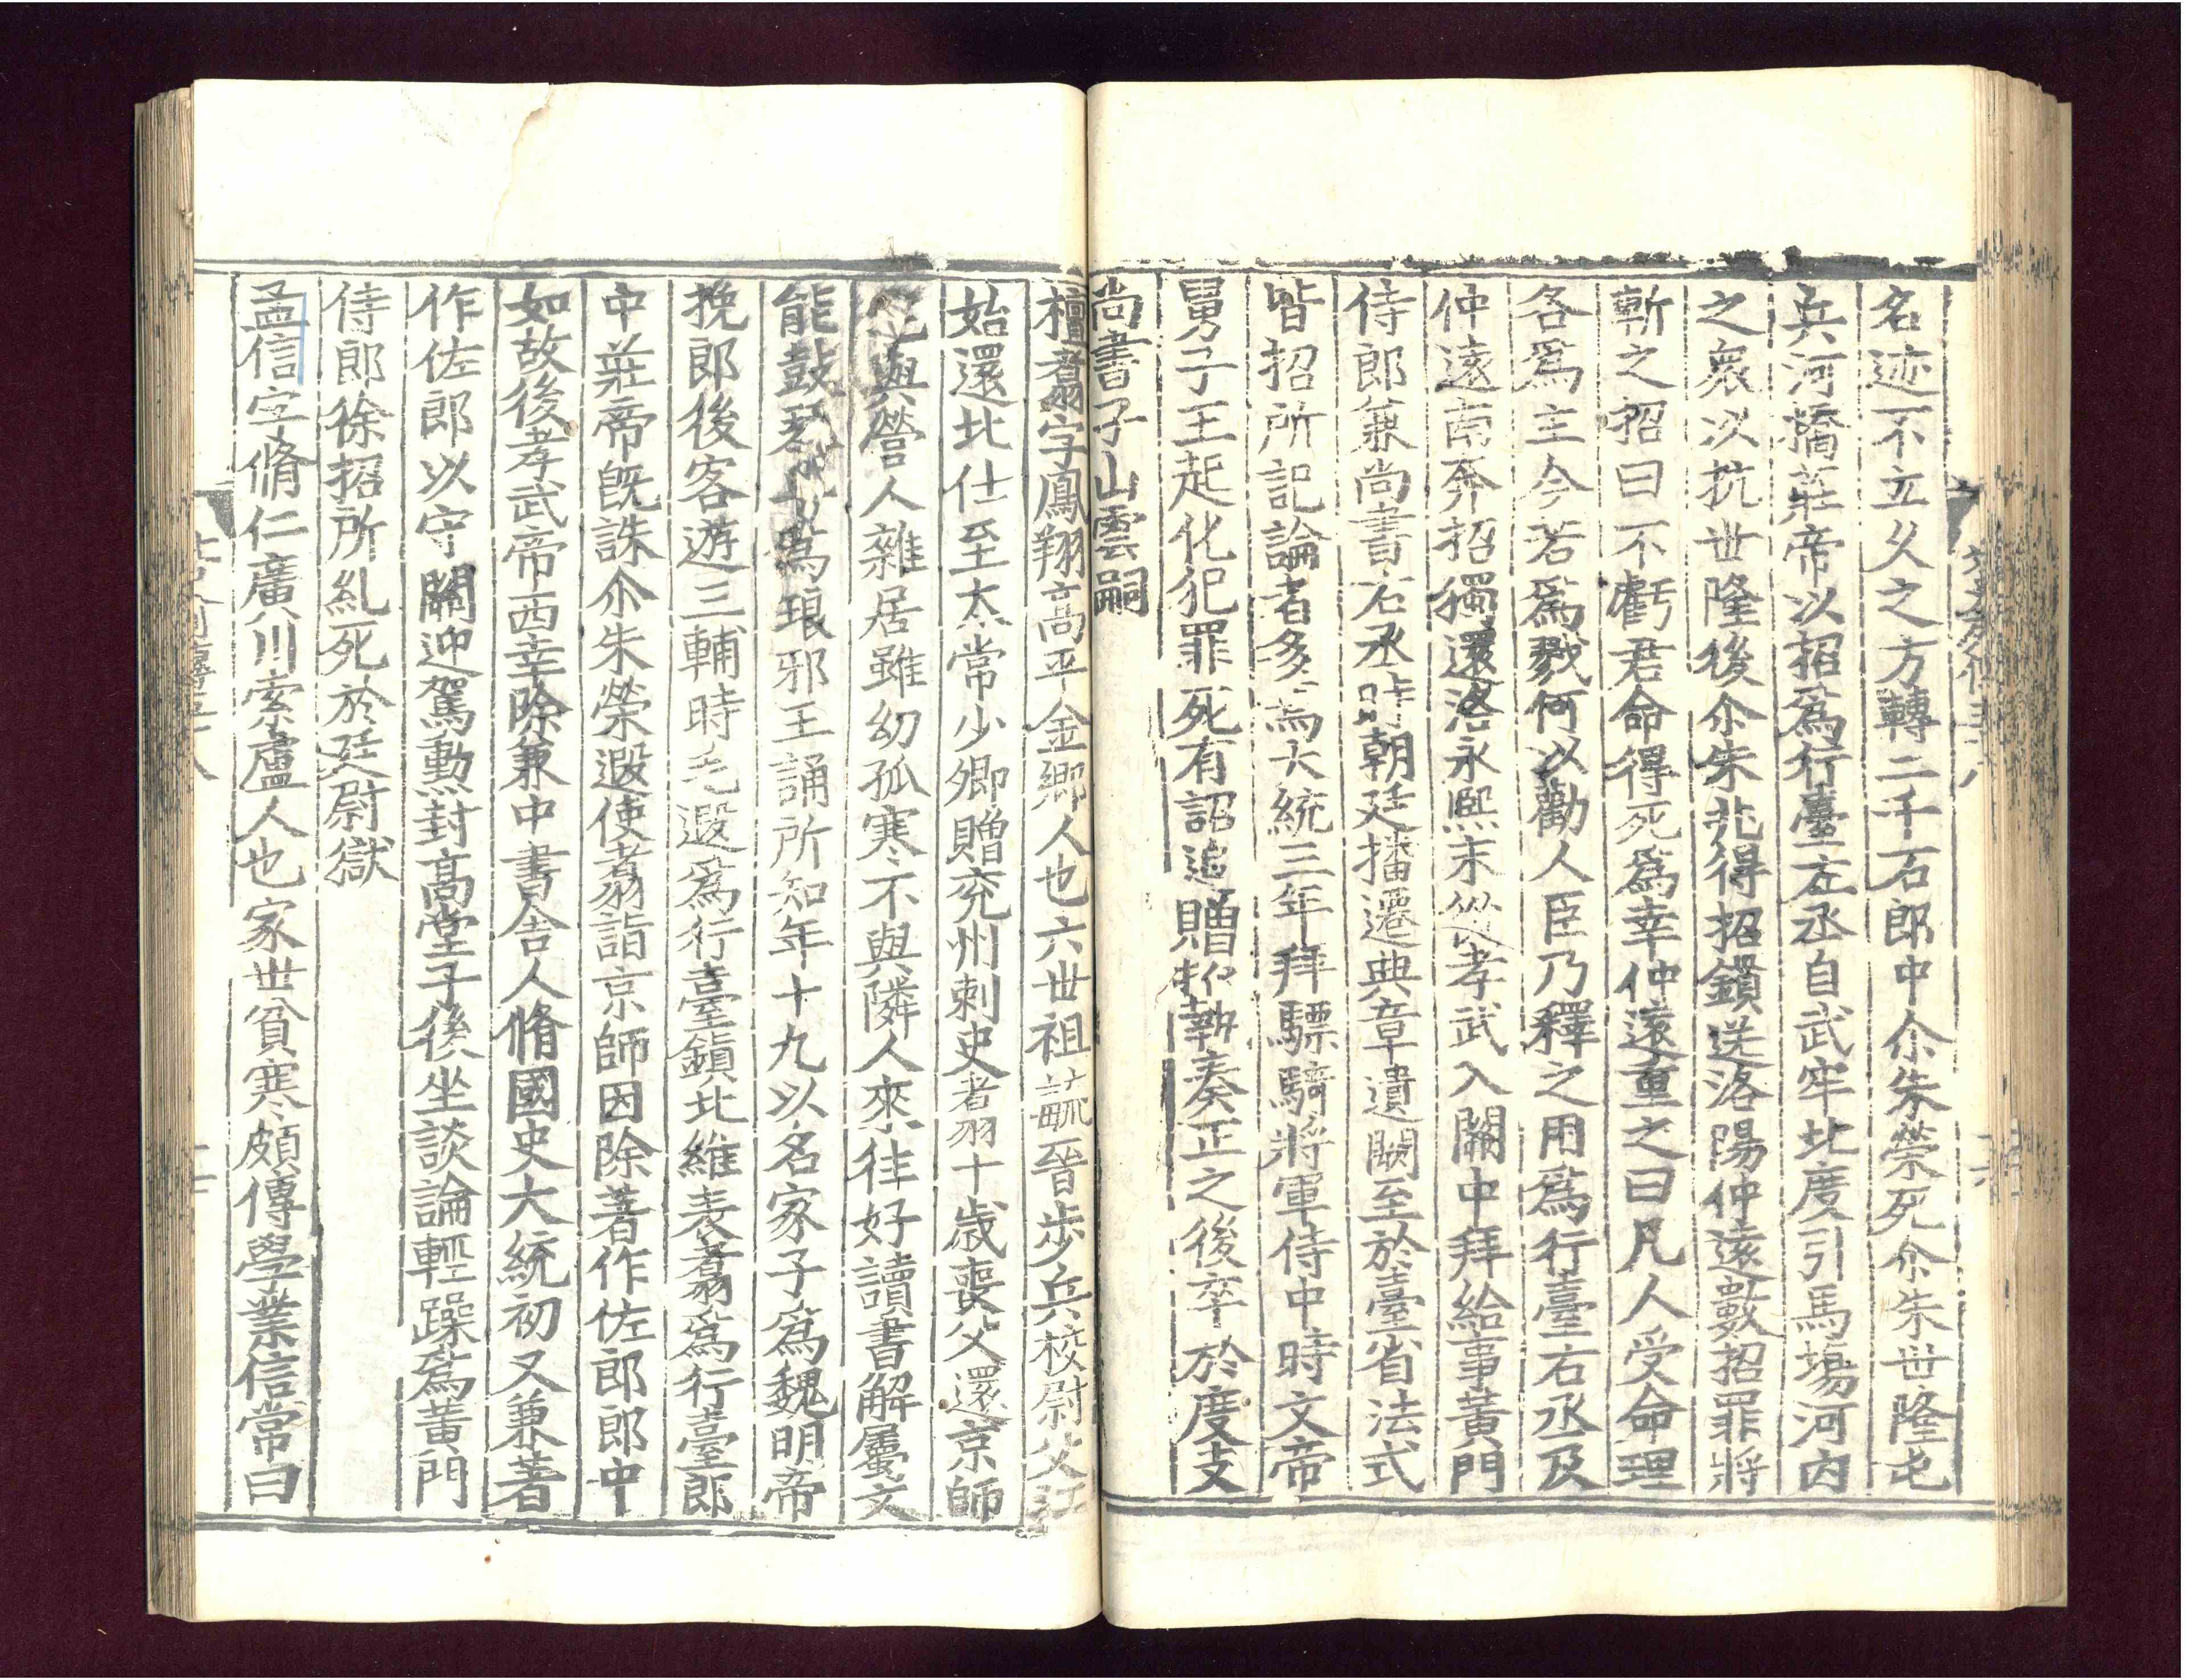 名迹不立久之方轉二千石郎中尒朱榮死尒朱世隆屯
兵河橋莊帝以招爲行臺左丞自武牢北度引馬塲河内
之衆以抗世隆後尒朱兆得招鏁送洛陽仲遠數招罪將
斬之招曰不虧君命得死爲幸仲遠重之曰凡人受命理
各爲主今若爲戮何以勸人臣乃釋之用爲行臺右丞及
仲遠南奔招獨還洛永熙末從孝武入關中拜給事黄門
侍郎兼尚書右丞時朝廷播遷典章遺闕至於臺省法式
皆招所記論者多焉大統三年拜驃騎將軍侍中時文帝
舅子王起化犯罪死有詔追贈招執奏正之後卒於度支
尚書子山雲嗣
檀翥字鳳翔高平金鄉人也六世祖毓晉步兵校尉父江
始還北仕至太常少卿贈兖州刺史翥十歲喪父還京師
宅與營人雜居雖幼孤寒不與隣人來往好讀書解屬文
能鼓琴爲琅邪王誦所知年十九以名家子爲魏明帝
挽郎後客遊三輔時毛遐爲行臺鎭北維表翥爲行臺郎
中莊帝既誅尒朱榮遐使翥詣京師因除著作佐郎郎中
如故後孝武帝西幸除兼中書舍人脩國史大統初又兼著
作佐郎以守關迎駕勲封高堂子後坐談論輕躁爲黄門
侍郎徐招所糺死於廷尉獄
孟信字脩仁廣川索盧人也家世貧寒頗傳學業信常曰